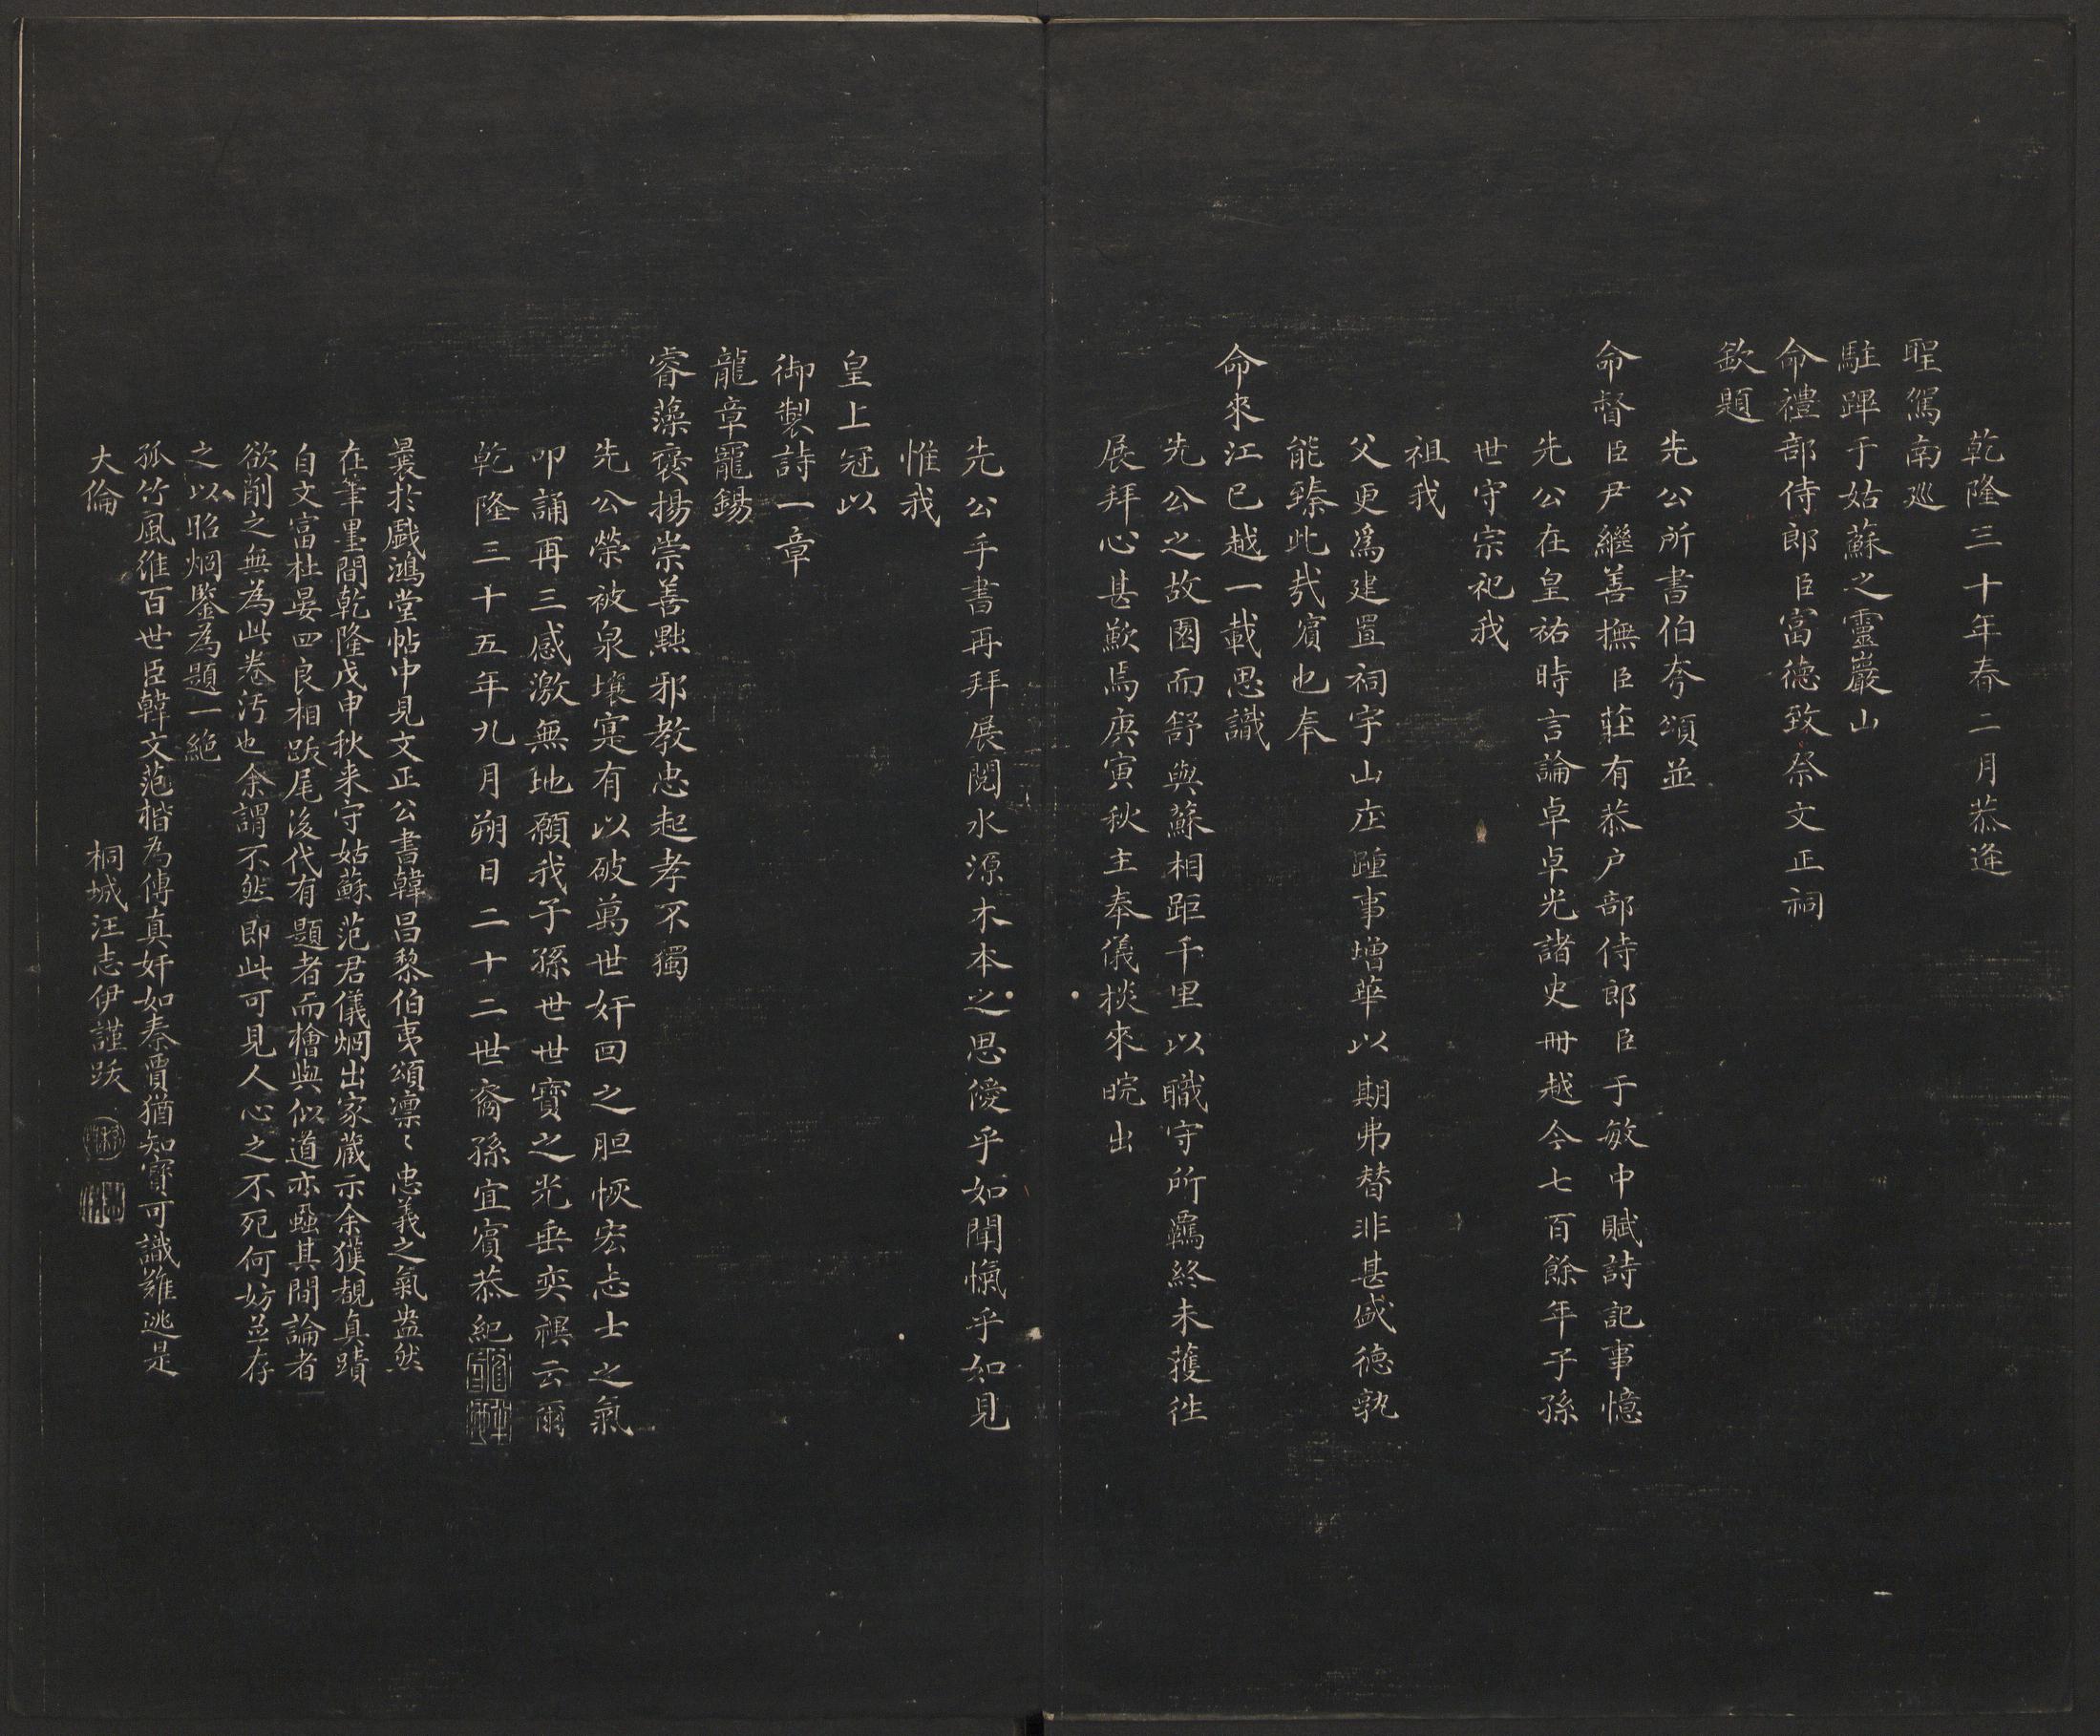 乾隆三十年春二月恭逢
聖駕南廵
駐蹕于姑蘇之靈巖山
命禮部侍郎臣富德致祭文正祠
欽題
先公所書伯夷頌並
命督臣尹繼善撫臣莊有恭户部侍郎臣于敏中賦詩記事憶
先公在皇祐時言論卓卓光諸史冊越今七百餘年子孫
世守宗祀我
祖我
父更爲建置祠宇山庄踵事增華以期弗替非甚盛德孰
能臻此㢤濱也奉
命來江已越一載思識
先公之故園而舒與蘇相距千里以職守所羈終未獲徃
展拜心甚歉焉庚寅秋主奉儀掞來皖出
先公手書再拜展閱水源木本之思僾乎如聞愾乎如見
惟我
皇上冠以
御製詩一章
龍章寵錫
睿藻褒揚崇善黜邪教忠起孝不獨
先公榮被泉壤寔有以破萬世奸回之胆恢宏志士之氣
叩誦再三感激無地願我子孫世世寶之光垂奕禩云爾
乾隆三十五年九月朔日二十二世裔孫宜賓恭紀
曩於戲鴻堂帖中見文正公書韓昌黎伯夷頌凛〻忠義之氣盎然
在筆墨間乾隆戊申秋来守姑蘇范君儀烱出家蔵示余獲覩真蹟
自文富杜晏四良相跋尾後代有題者而檜與似道亦蝨其間論者
欲削之無為此卷汚也余謂不然即此可見人心之不死何妨並存
之以昭烱鑒為題一絶
孤竹風維百世臣韓文范楷為傳真奸如秦賈猶知寳可識難逃是
大倫
桐城汪志伊謹跋